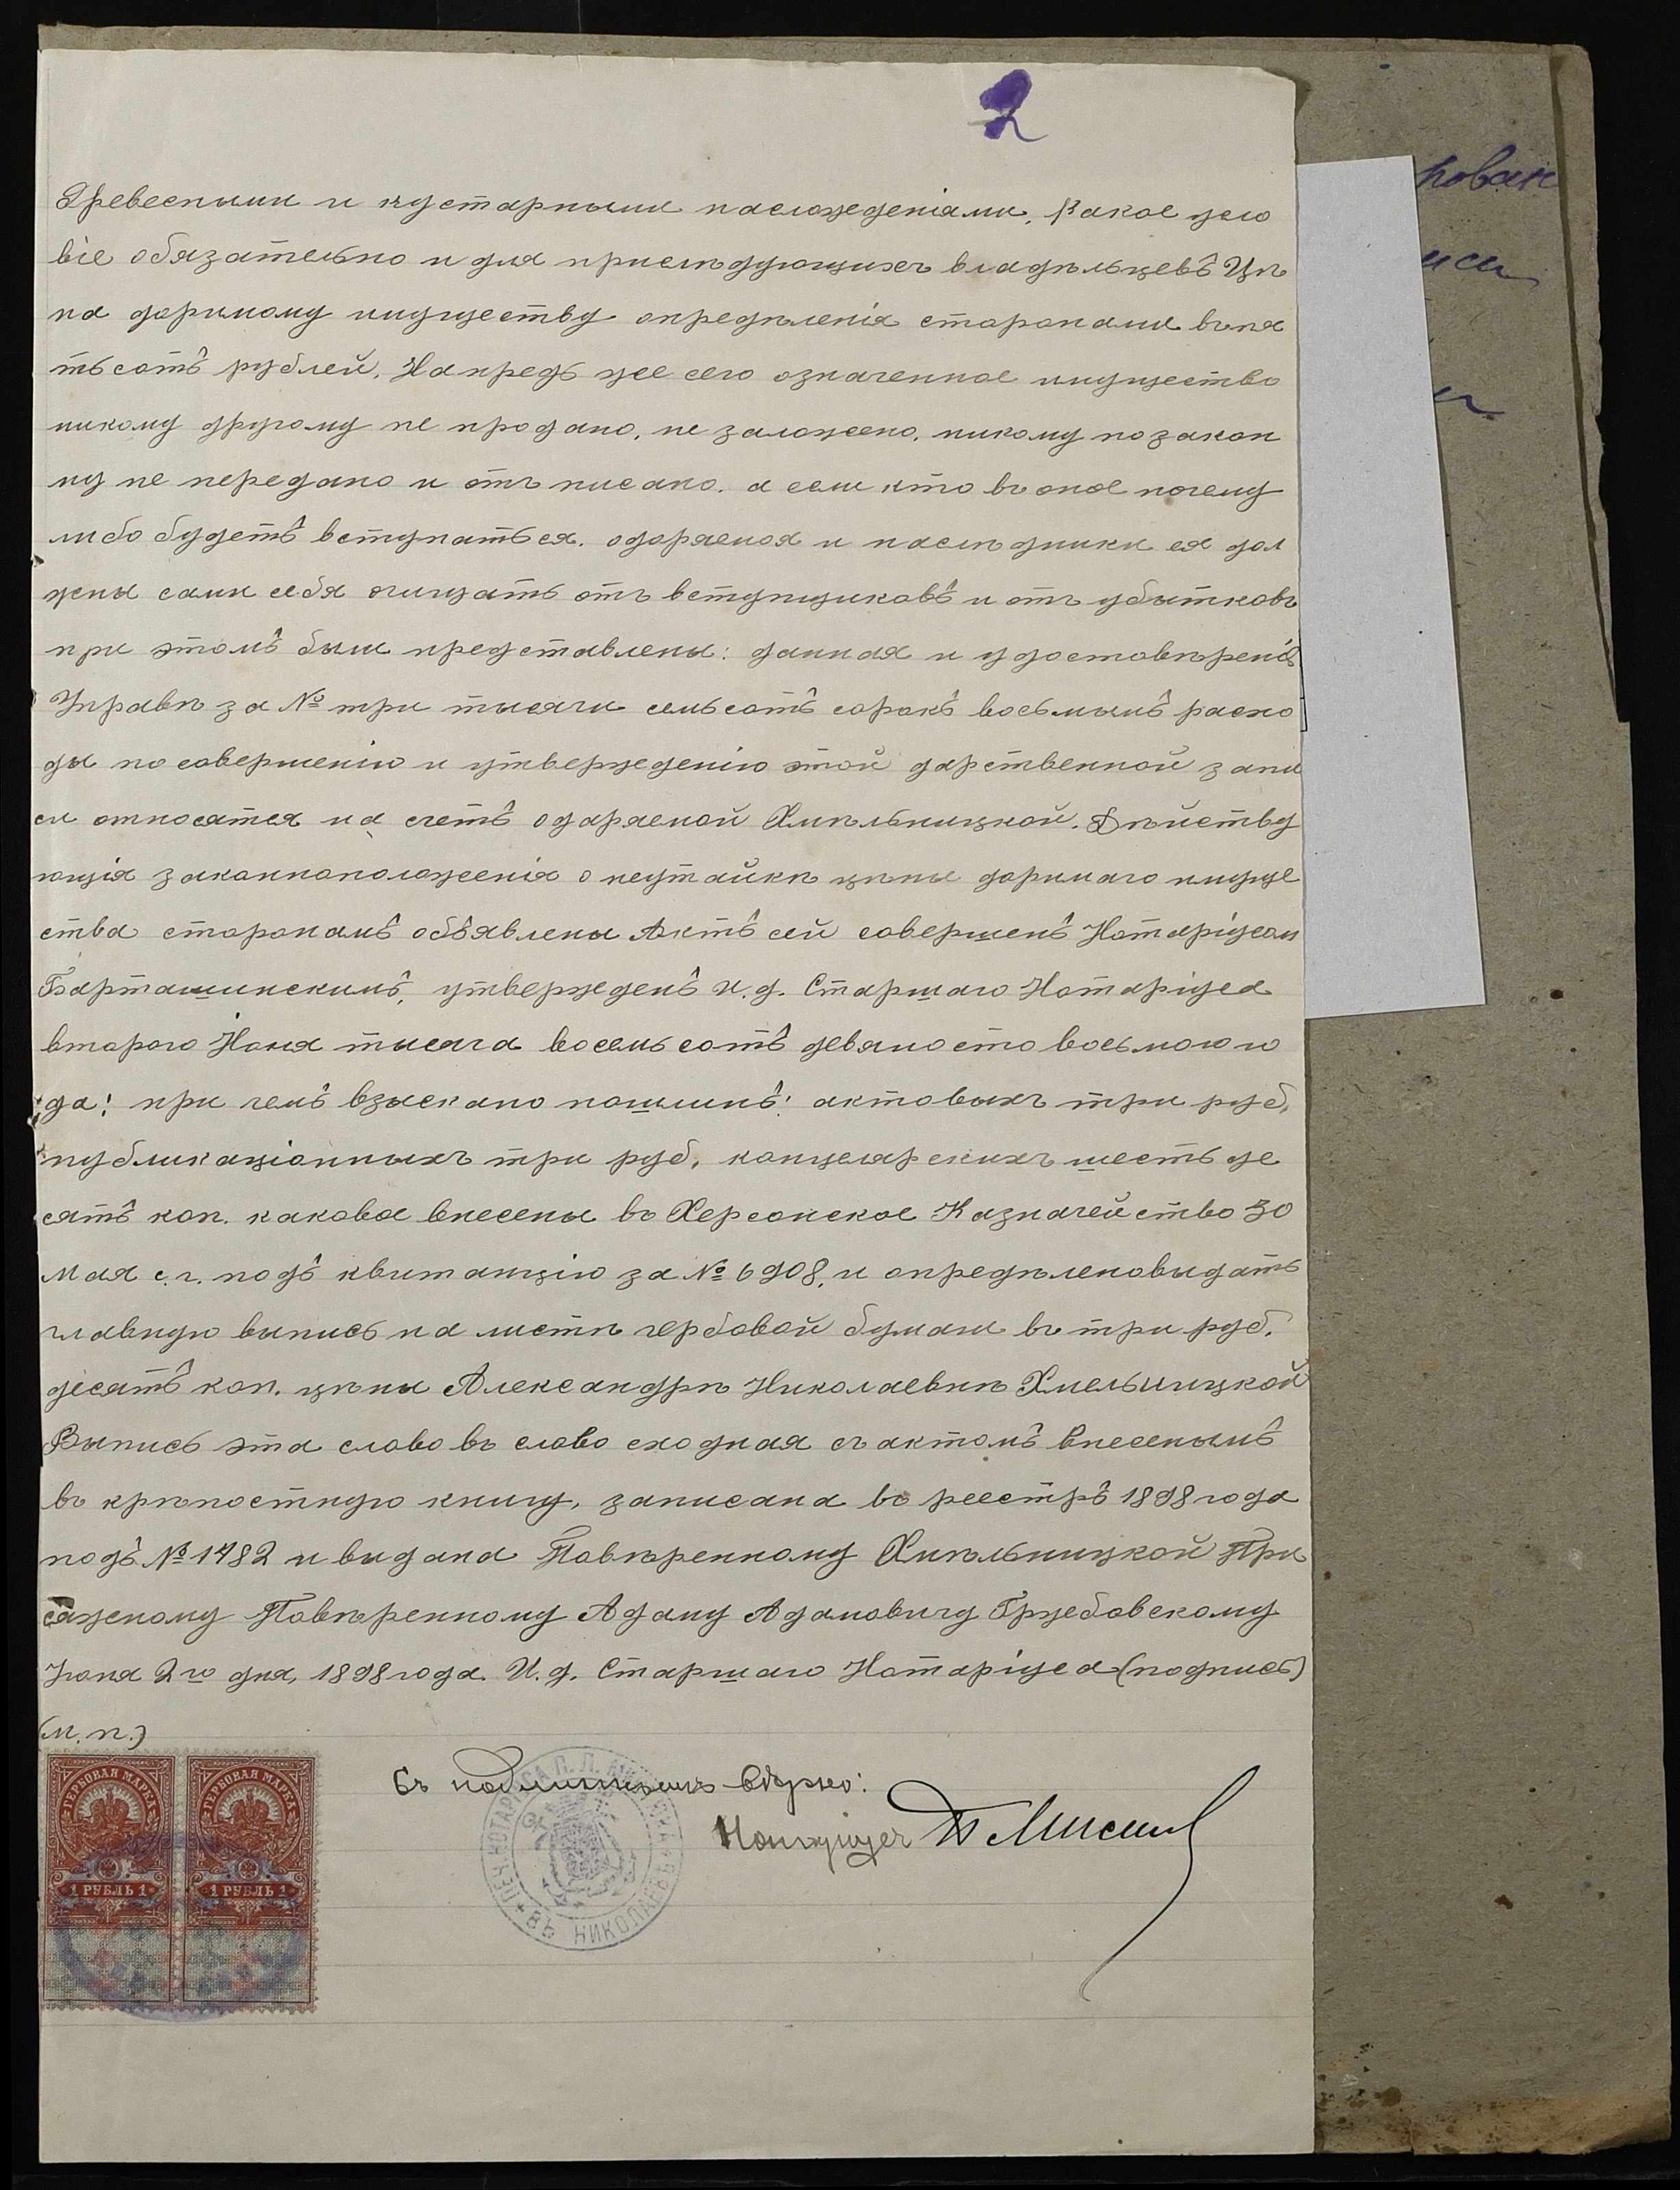 2
Древесными и кустарными насажденіями. Какое усло
віе обязательно и для прислѣдующихъ владѣльцевъ Цѣ
на даримому имуществу опредѣленія сторонами въ пя
тьсотъ рублей. Напредь же сего означенное имущество
никому другому не продано, не заложено, никому по закон
ну не передано и отъ писано. а если кто въ оное почему
либо будетъ вступаться. одоряемая и наслѣдники ея дол
жны сами себя очищать отъ вступщиковъ и отъ убытковъ
при этомъ были представлены: данная и удостовѣреніе
Управѣ за № три тысячи семьсотъ сорокъ восьмымъ расхо
ды по совершенію и утвержденію этой дарственной запи
си относятся на счетъ одаряемой Хмѣльницкой. Дѣйству
ющія законноположенія о неутайкѣ цѣны даримаго имуще
ства сторонамъ объявлены Актъ сей совершенъ Нотаріусом
Барташинскимъ, утвержденъ И.д. Старшаго Нотаріуса
второго Іюня тысяча восемьсотъ девяносто восьмого го
да: при чемъ взыскано пошлинъ: актовыхъ три руб,
публикаціонныхъ три руб, канцелярскихъ шестьде
сятъ коп. каковые внесены въ Херсонское Казначейство 30
Мая с.г. подъ квитанцію за № 6908, и опредѣлено выдать
главную выпись на листѣ гербовой бумаги въ три руб.
десятъ коп. цѣны Александрѣ Николаевнѣ Хмельницкой
Выпись эта слово въ слово сходная съ актомъ внесенымъ
въ крѣпостную книгу, записана въ реестръ 1898 года
подъ № 1482 и выдана Повѣренному Хмѣльницкой При
сяжному Повѣренному Адаму Адамовичу Гржебовскому
Іюня 2го дня, 1898 года. И.д. Старшаго Нотаріуса (подпись)
(М.п.)
ГЕРБОВАЯ МАРКА ГЕРБОВАЯ МАРКА
1 РУБЛЬ 1 1 РУБЛЬ 1
Съ подлиннымъ вѣрно:
Нотаріусъ
ПЕЧ. НОТАРІУСА
ВЪ НИКОЛАЕВѢ